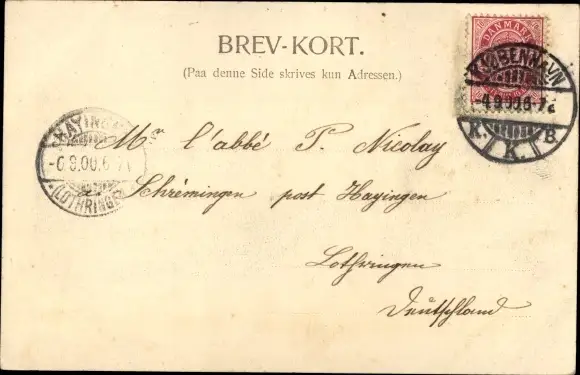 BREV-KORT.
(Paa denne Side skrives kun Adressen.)
DANMARK
KJØBENHAVN
-4.9.00.6-7
K. K. B
HAYINGEN
-6.9.00.6-7
(LOTHRINGEN)
Mr l'abbé P. Nicolay
Schrémingen post Hayingen
Lothringen
Deutschland